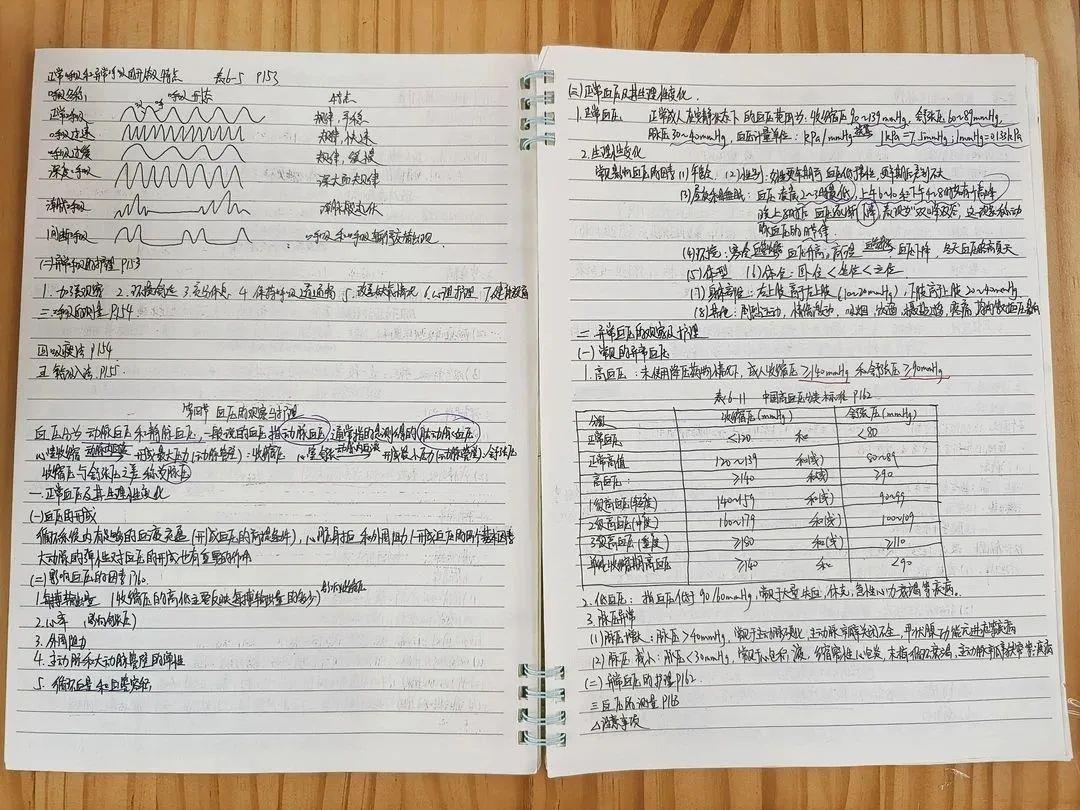 正常呼吸和异常呼吸的形态及特点 表6-5 P153
呼吸名称 呼吸形态 特点
吸 呼
正常呼吸 规律,平稳
呼吸过速 规律,快速
呼吸过缓 规律,缓慢
深度呼吸 深大而规律
潮式呼吸 潮水般起伏
间断呼吸 呼吸和呼吸暂停交替出现
(二)异常呼吸的护理 P153
1.加强观察 2.环境舒适 3.充分休息 4.保持呼吸道通畅 5.改善缺氧情况 6.心理护理 7.健康教育
三.呼吸的测量 P154
四.吸痰法 P154
五.氧气吸入法 P155
第四节 血压的观察与护理
血压分为动脉血压和静脉血压,一般说的血压指动脉血压,通常指的是测得的(肱动脉血压)
收缩压与舒张压之差称为脉压
一.正常血压及其生理性变化
(一)血压的形成
循环系统内有足够的血液充盈(形成血压的前提条件),心脏射血和外周阻力(形成血压的两个基本因素
大动脉的弹性对血压的形成也有重要的作用
(二)影响血压的因素 P160
1.每搏输出量 (收缩压的高低主要反映每搏输出量的多少) 影响收缩压
2.心率 (影响舒张压)
3.外周阻力
4.主动脉和大动脉管壁的弹性
5.循环血量和血管容积
(三)正常血压及其生理性变化
1.正常血压 正常成人在安静状态下的血压范围为:收缩压90~139mmHg,舒张压60~89mmHg,
脉压30~40mmHg,血压计量单位:kPa/mmHg 换算 1kPa=7.5mmHg;1mmHg=0.133kPa
2.生理性变化
常见影响血压的因素 (1)年龄 (2)性别:女性更年期前血压低于男性,更年期后差别不大
(3)昼夜和睡眠:血压凌晨2~3时最低,上午6~10和下午4~8时各有一个高峰
晚上8时后血压缓慢下降,表现为"双峰双谷",这一现象称动
脉血压的日节律
(4)环境:寒冷 血压升高,高温 血压下降,冬天血压略高夏天
(5)体型 (6)体位:卧位<坐位<立位
(7)身体部位:右上肢高于左上肢(10~20mmHg),下肢高于上肢20~40mmHg
(8)其他:剧烈运动,情绪激动,吸烟,饮酒,摄盐过多,疼痛,均可致血压影响
二.异常血压的观察及护理
(一)常见的异常血压
1.高血压:未使用降压药物情况下,成人收缩压≥140mmHg和舒张压≥90mmHg
表6-11 中国高血压分类标准 P162
分级 收缩压(mmHg) 舒张压(mmHg)
正常血压 <120 和 <80
正常高值 120~139 和(或) 80~89
高血压: ≥140 和(或) ≥90
1级高血压(轻度) 140~159 和(或) 90~99
2级高血压(中度) 160~179 和(或) 100~109
3级高血压(重度) ≥180 和(或) ≥110
单纯收缩期高血压 ≥140 和 <90
2.低血压:指血压低于90/60mmHg,常见于大量失血,休克,急性心力衰竭等疾病。
3.脉压异常
(1)脉压增大:脉压>40mmHg,常见于主动脉硬化,主动脉瓣关闭不全,甲状腺功能亢进等疾病
(2)脉压减小:脉压<30mmHg,常见于心包积液,缩窄性心包炎,末梢循环衰竭,主动脉瓣狭窄等疾病
(二)异常血压的护理 P162
三.血压的测量 P163
△注意事项